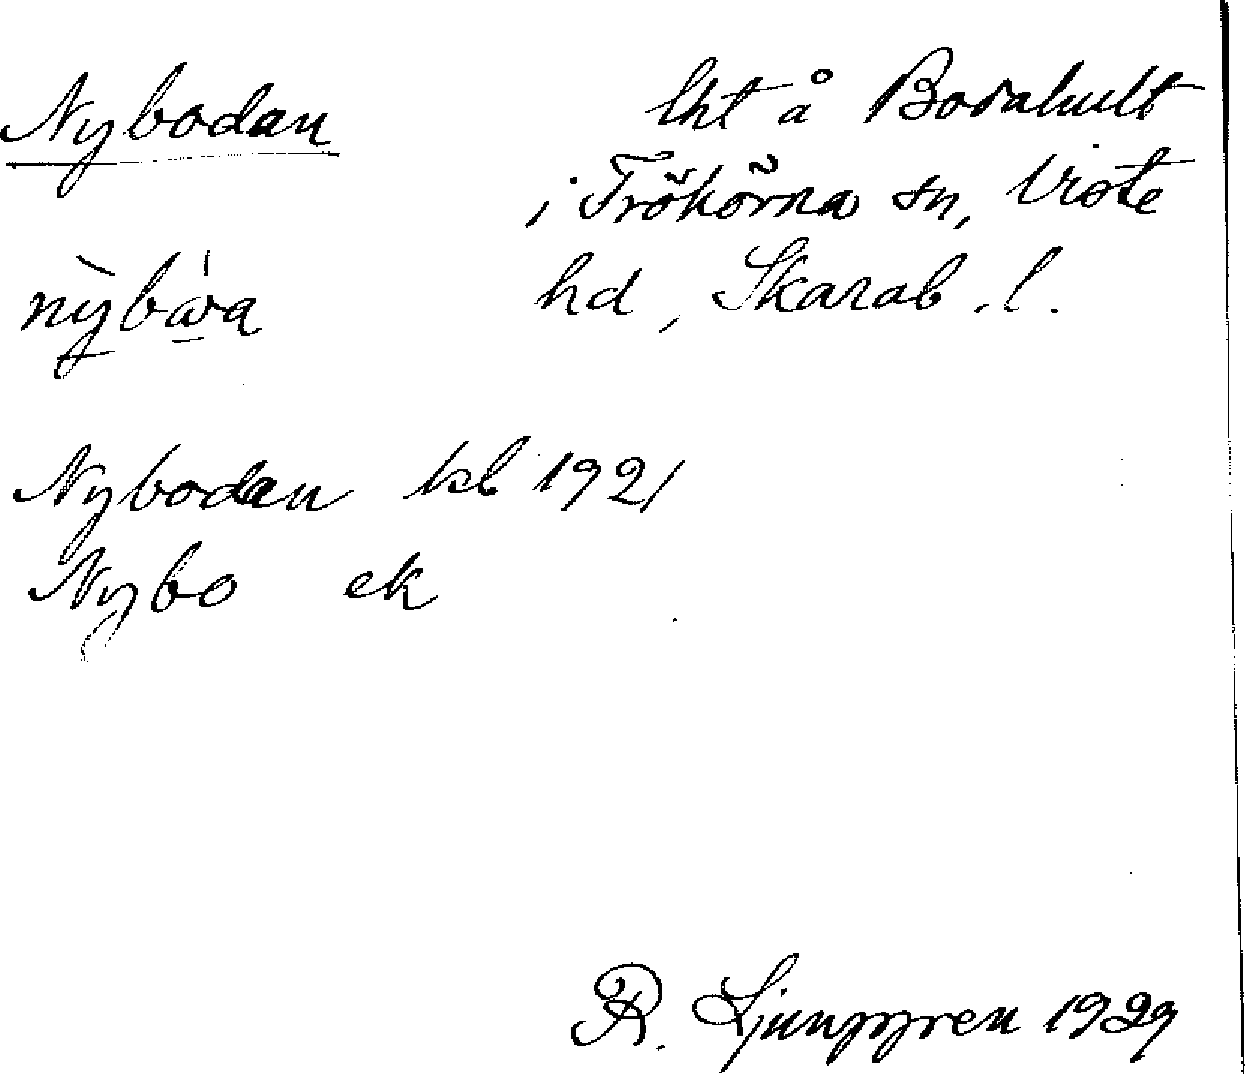 Nybodan lht å Bosahult
i Trökörna sn, Viste
hd, Skarab. l.
Nybodan kb 1921
Nybo ek
R. Ljunggren 1929